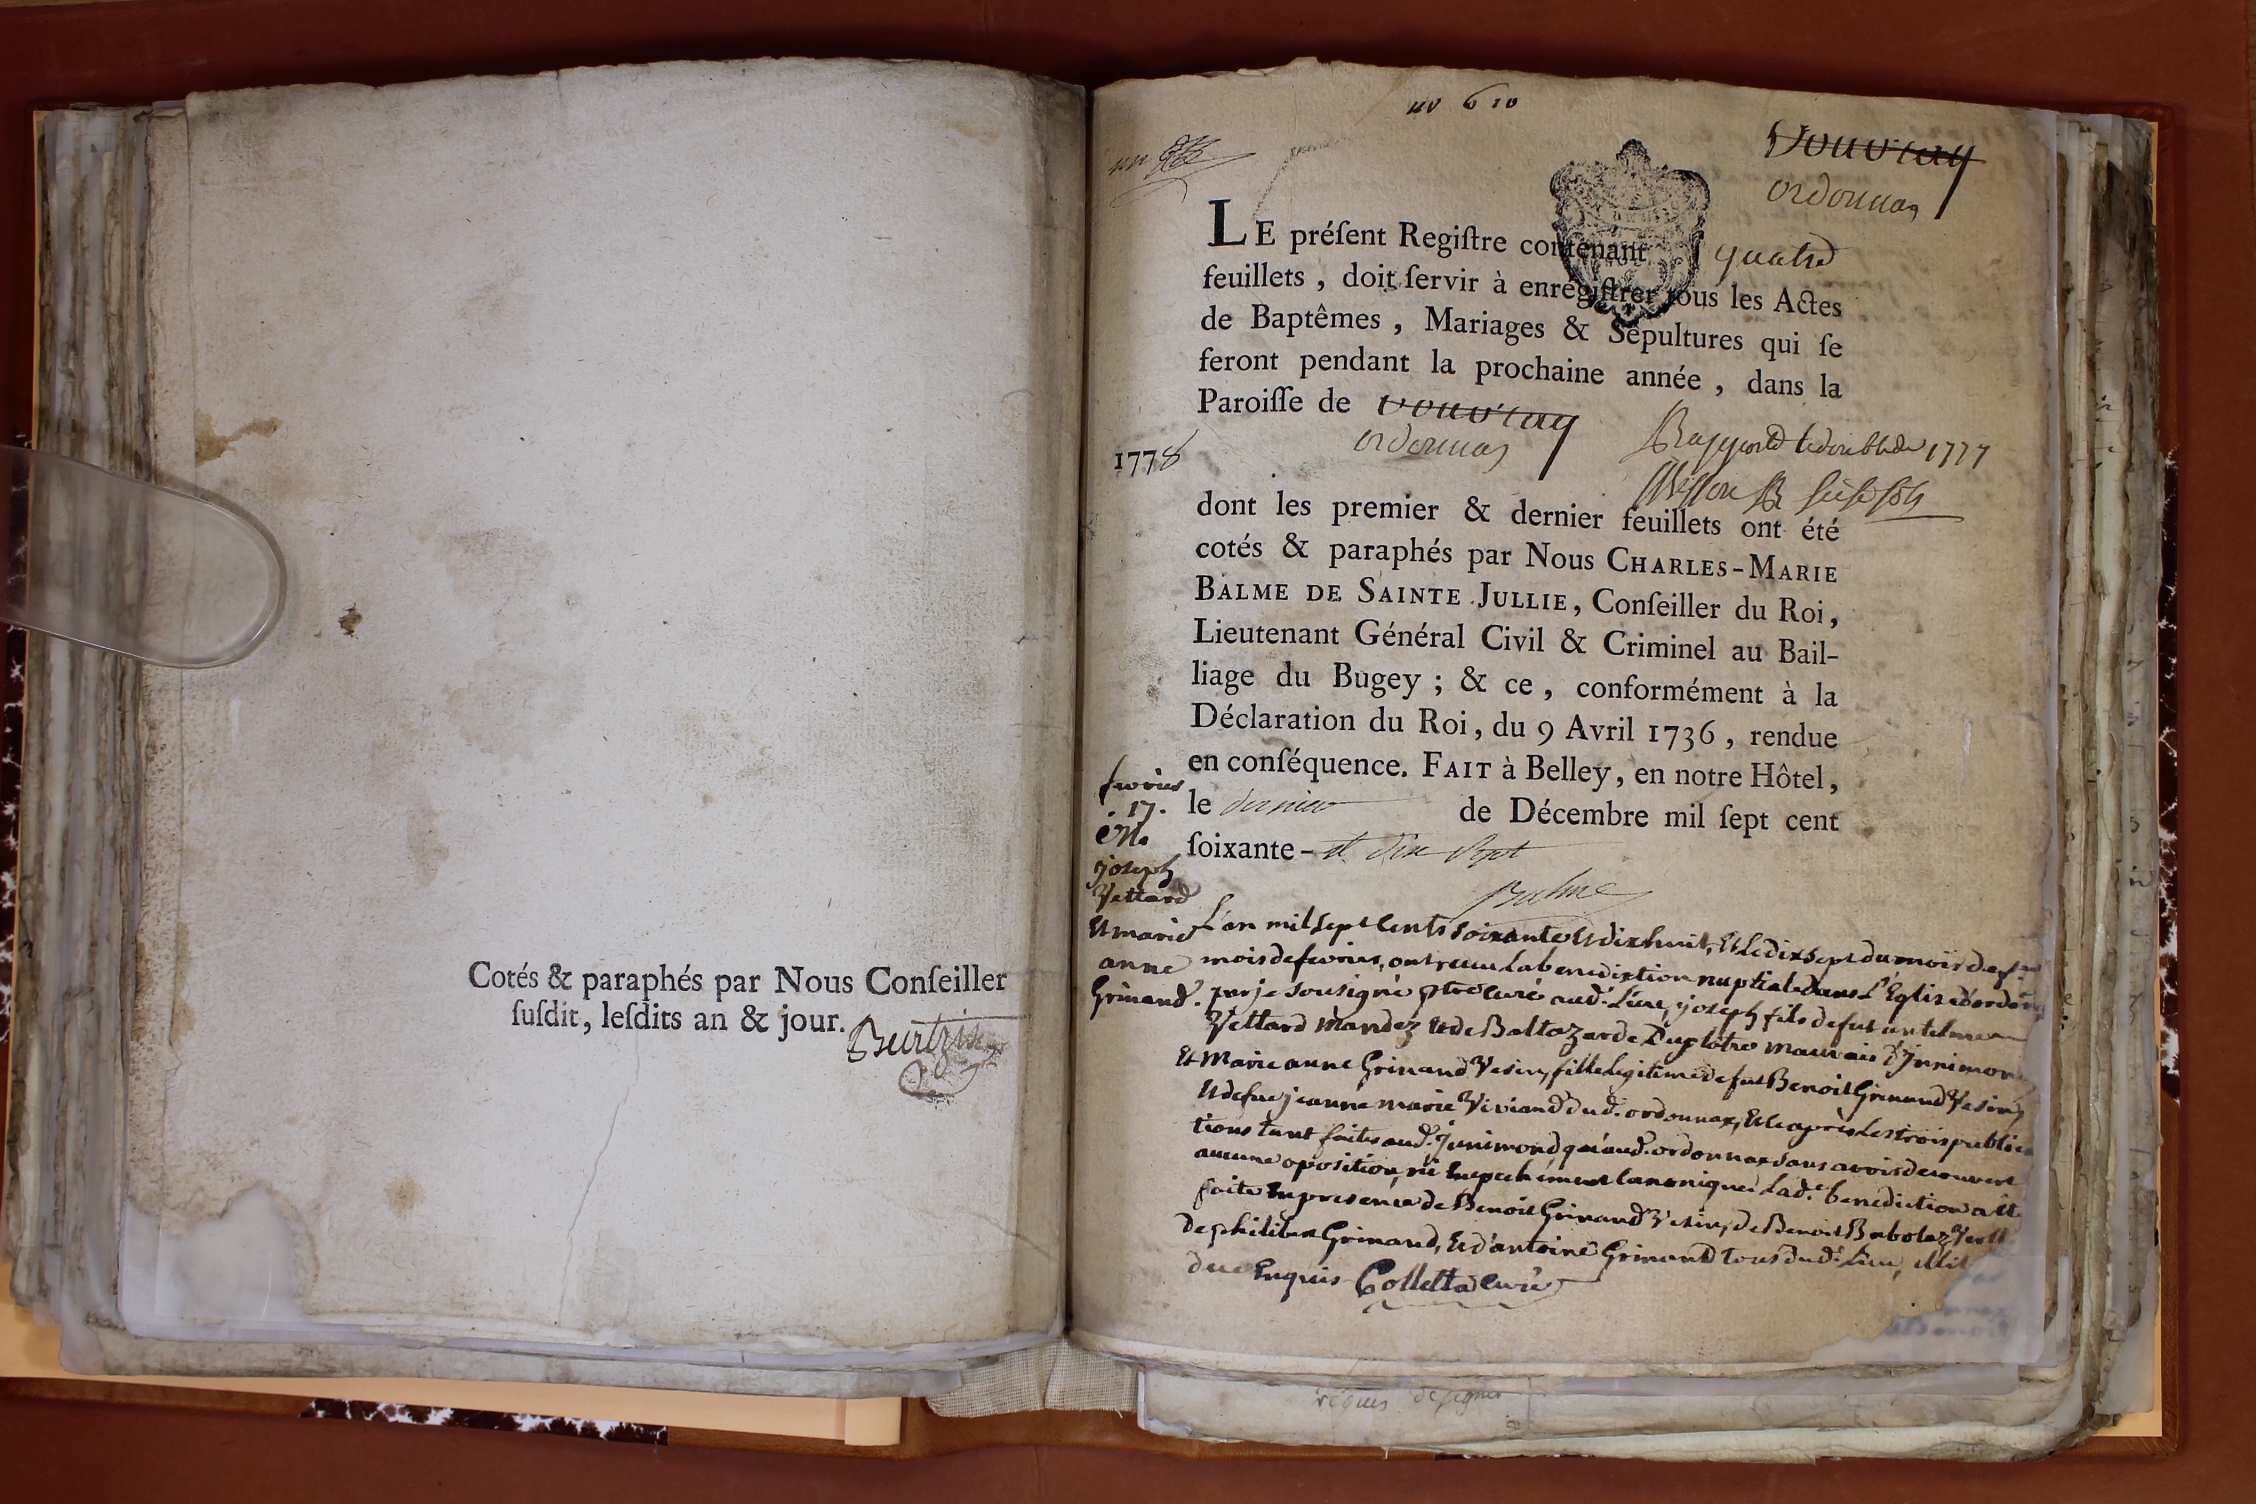 Cotés & paraphés par Nous Conſeiller
ſuſdit, leſdits an & jour.
nº 610
un
Vouvray
ordonnas
LE préſent Regiſtre contenant quatre
feuillets, doit ſervir à enrégiſtrer tous les Actes
de Baptêmes, Mariages & Sépultures qui ſe
feront pendant la prochaine année, dans la
Paroiſſe de vouvray
ordonnas
1778
dont les premier & dernier feuillets ont été
cotés & paraphés par Nous CHARLES-MARIE
BALME DE SAINTE JULLIE, Conſeiller du Roi,
Lieutenant Général Civil & Criminel au Bail-
liage du Bugey; & ce, conformément à la
Déclaration du Roi, du 9 Avril 1736, rendue
en conſéquence. FAIT à Belley, en notre Hôtel,
le dernier de Décembre mil ſept cent
ſoixante-et dix sept
Balme
fevrier
.17.
M.
joseph
Vettard
et marie
anne
Grinand.
L'an mil sept cents soixante et dix huit, et le dix sept du mois de
mois de fevrier, ont receu la benediction nuptiale dans l'Eglise d'ordon
par je sousigné ptre curé aud. lieu, joseph fils de fut antelme
Vettard Mandez et de Baltazarde Duplatre mauvais d'Innimon
et Marie anne Grinand Vesin, fille legitime de fut Benoit Grinand Vesin
et de fue jeanne marie Viviand dud. ordonnax, et ce apres les trois public
tions tant faites aud. Innimond qu'aud. ordonnax sans avoir decouvert
aucune oposition, ni empechement canonique, lad.e benediction a été
faite en presence de Benoit Grinand Vesin, de Benoit Babolaz
de philibert Grinand, et d'antoine Grinand tous dud. lieu, illit
enquis Colletta curé